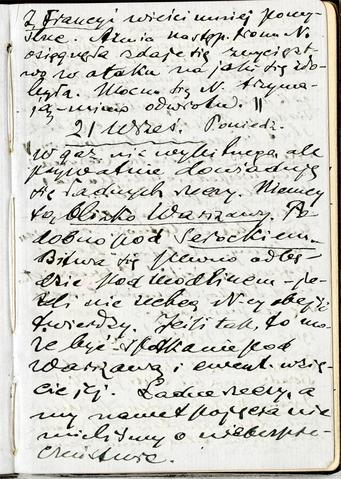 Z Francyi wieści mniej pomy-
ślne. Armia następ. tronu N.
osięgnęła zdaje się zwycięst-
wo w ataku na jaki się zdo-
była. Mocno się N. trzyma-
ją mimo odwrotu. ||
21 Wrześ. Poniedz.
W gaz. nic wybitnego, ale
prywatnie dowiaduję
się ładnych rzeczy. Niemcy
są blizko Warszawy. Po-
dobno pod Serockiem.
Bitwa się pewno odbę-
dzie pod Modlinem – je-
żeli nie zechcą N-cy obejść
twierdzy. Jeśli tak, to mo-
że być spotkanie pod
Warszawą i ewent. wzię-
cie jej. Ładne rzeczy, a
my nawet pojęcia nie
mieliśmy o niebezpie-
czeństwie.